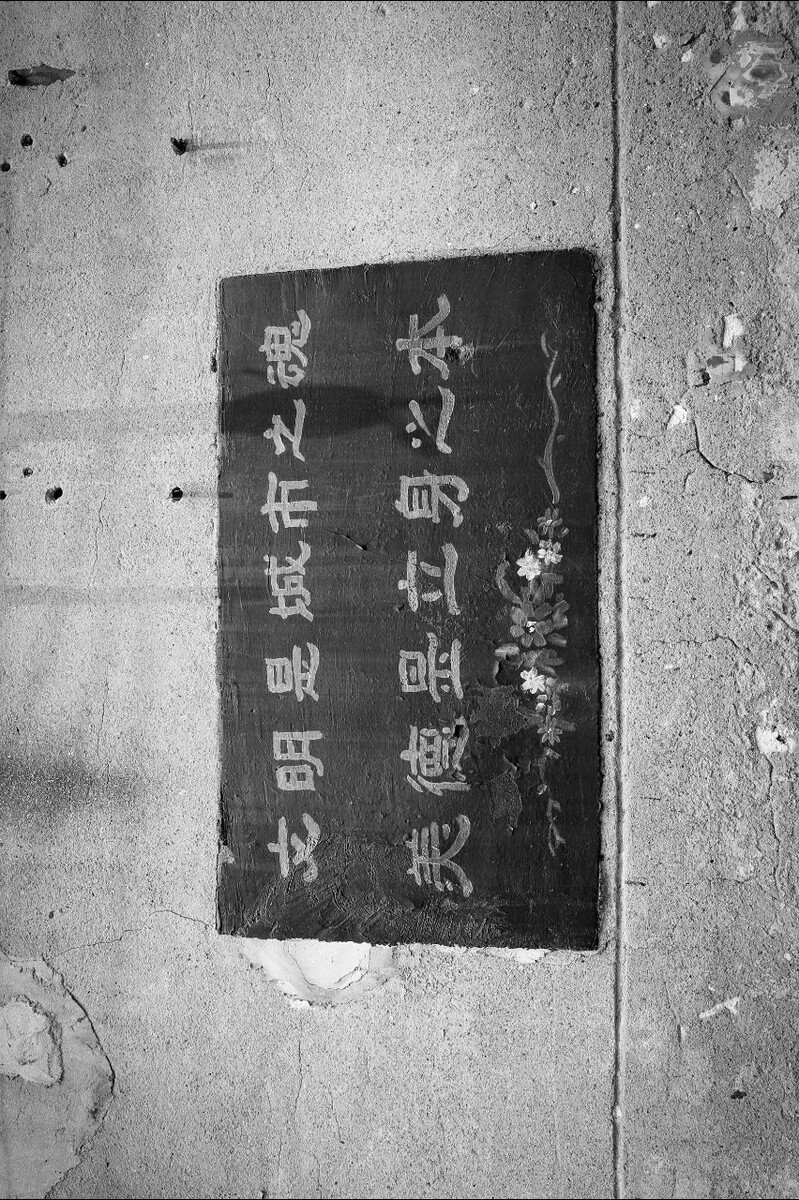 文明是城市之魂
美德是立身之本